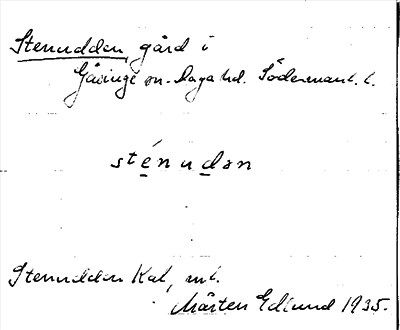 Stenudden, gård i
Gåsinge sn. Daga hd. Södermanl. l.
sténudən
Stenudden Kat, mt.
Mårten Edlund 1935.